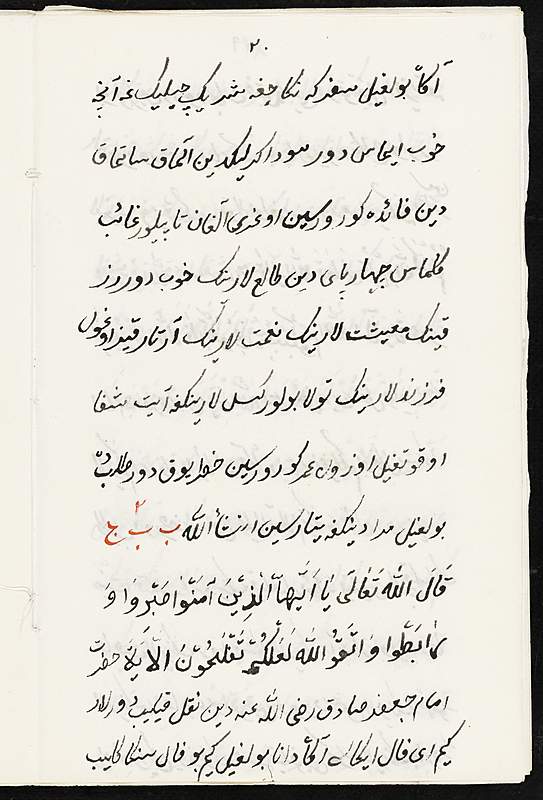 ۲۰
آکاه بولغیل سفر که نکاحغه شریک چیلیک غه آنچه
خوب ایماس دور سودا کرلیکدین آلماق ساتماق
دین فائده کورورسین اوغری آلغان تاپیلور غائب
کلماس چهارپای دین طالع لارینک خوب دور رز
قینک معیشت لارینک نعمت لارینک آرتار قیز اوغول
فرزند لارینک تولا بولور کسل لارینکغه آیت شفا
اوقوتغیل اوزون عمر کورورسین خطر یوق دور طلبده
بولغیل مرادینکغه یتارسین انشأ الله ب ب ج
۲
قَالَ اللّٰه تَعَالٰی یَا اَیُّهَا الَّذِیْنَ آمَنُوا صْبِرُوا وَ
رَابِطُوا وَاتَّقُوا اللّٰهَ لَعَلَّکُمْ تُفْلِحُوْنَ الآیَة حضرت
امام جعفر صادق رضی الله عنه دین نقل قیلیب دورلار
کیم ای فال ایکاسی آکاه دانا بولغیل کیم بو فال سنکا کالیب